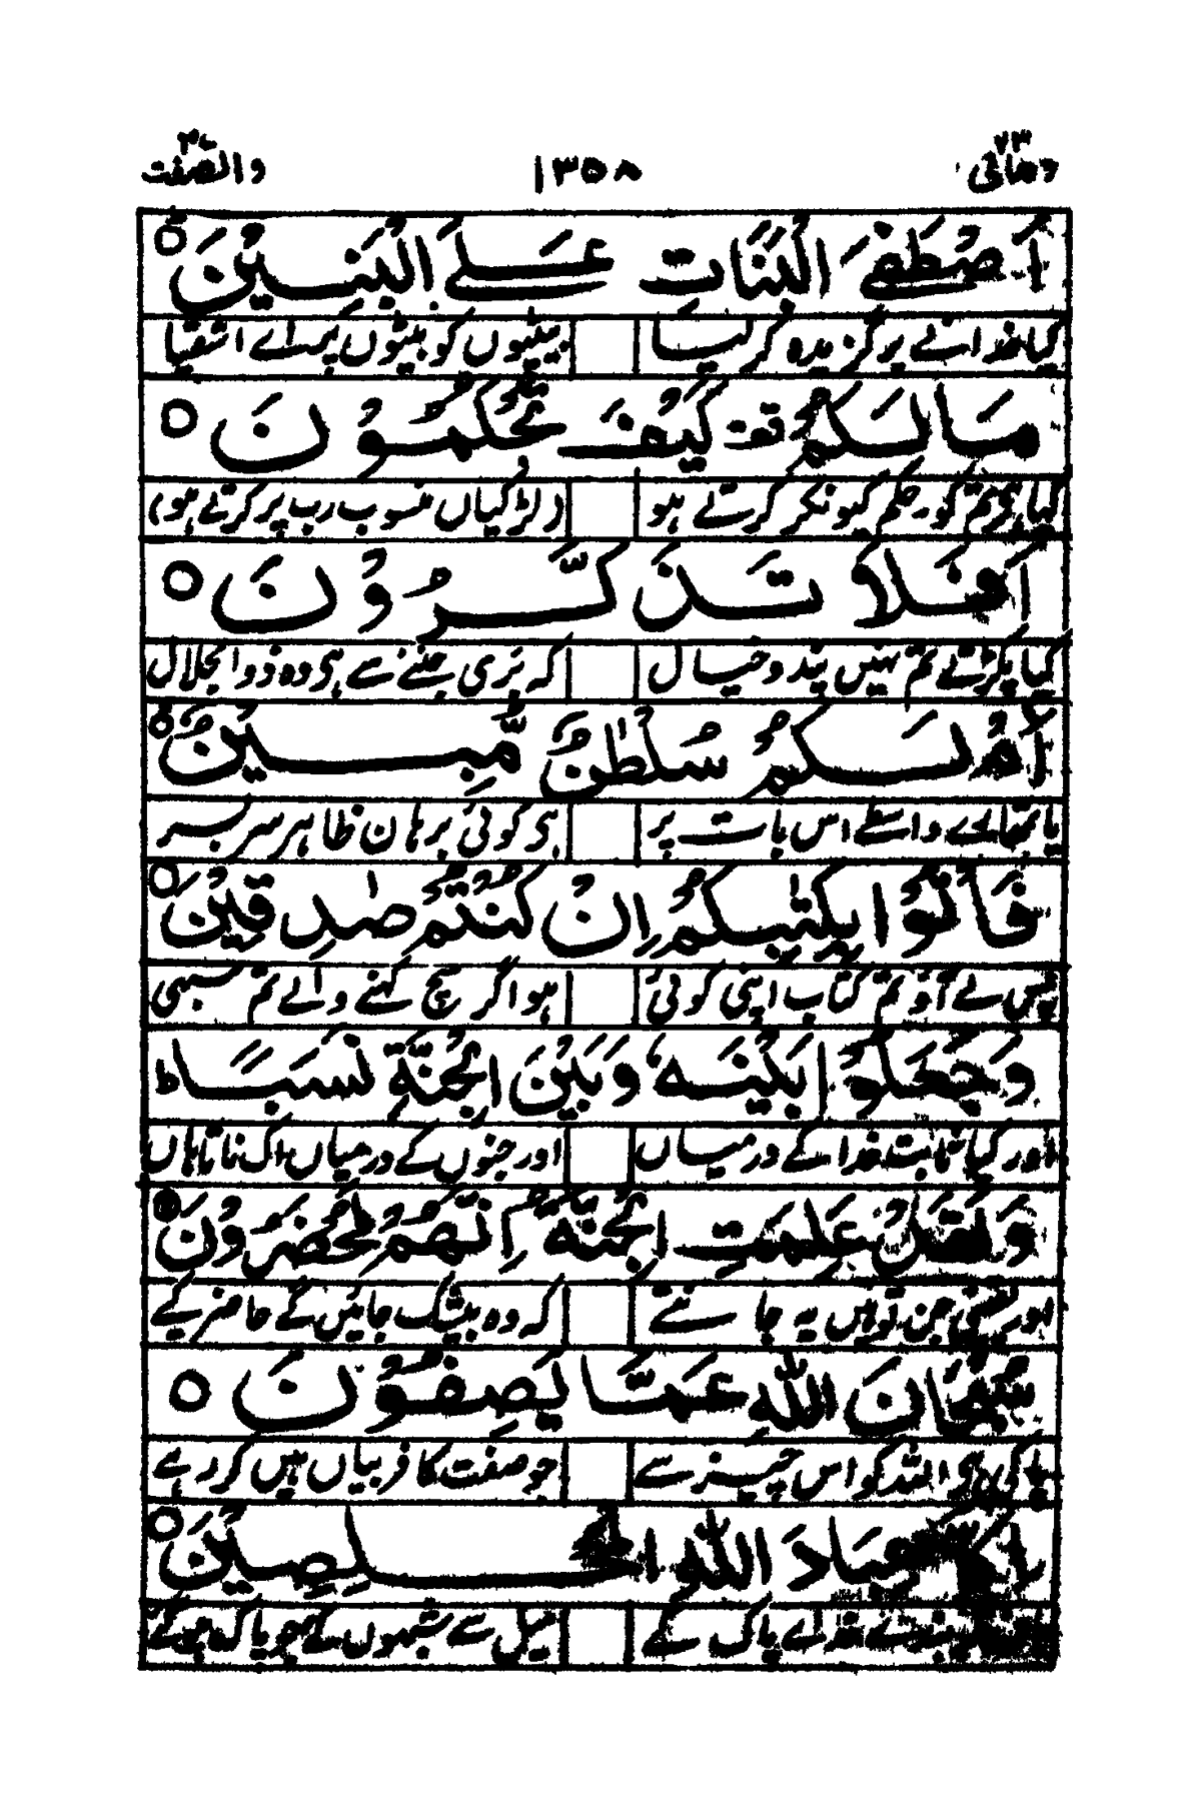 ومالی ٢٣ ١٣٥٨ والصٰفٰت ٣٧
اَصْطَفَى الْبَنَاتِ عَلَى الْبَنِيْنَ ○
کیا خدا نے برگزیدہ کر لیا بیٹیوں کو بیٹوں پر اے اشقیا
مَا لَكُمْ قف كَيْفَ تَحْكُمُوْنَ ○
کیا ہی تم کو۔ حکم کیونکر کرتے ہو (لڑکیاں منسوب رب پر کرتے ہو)
اَفَلَا تَذَكَّرُوْنَ ○
کیا پکڑتے تم نہیں پند و خیال کہ بَری جننے سے ہی وہ ذوالجلال
اَمْ لَكُمْ سُلْطٰنٌ مُّبِيْنٌ ○
یا تمھارے واسطے اس بات پر ہی کوئی برہان ظاہر سربسر
فَاْتُوْا بِكِتٰبِكُمْ اِنْ كُنْتُمْ صٰدِقِيْنَ ○
پس لے آؤ تم کتاب اپنی کوئی ہو اگر سچ کہنے والے تم سبھی
وَجَعَلُوْا بَيْنَهٗ وَبَيْنَ الْجِنَّةِ نَسَبًا ط
اور کیا ثابت خدا کے درمیاں اور جنوں کے درمیاں اک ناتا ہاں
وَلَقَدْ عَلِمَتِ الْجِنَّةُ اِنَّهُمْ لَمُحْضَرُوْنَ ○
اور جن تو ہیں یہ جانتے کہ وہ بیشک جائیں گے حاضر کیے
سُبْحَانَ اللّٰهِ عَمَّا يَصِفُوْنَ ○
پاکی ہی اللہ کو اس چیز سے جو صفت کافر بیاں ہیں کر رہے
اِلَّا عِبَادَ اللّٰهِ الْمُخْلَصِيْنَ ○
بندے خدائے پاک کے میل سے شبہوں کے جو پاک